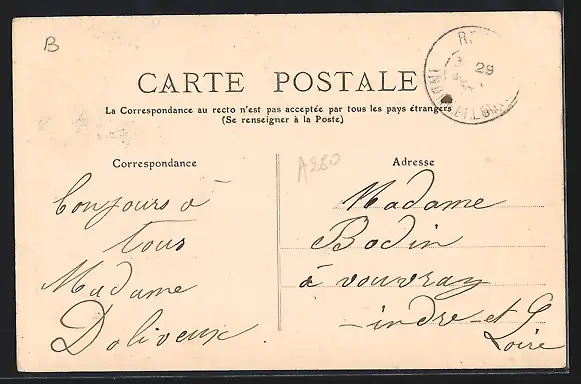 B
CARTE POSTALE
La Correspondance au recto n'est pas acceptée par tous les pays étrangers
(Se renseigner à la Poste)
Correspondance
A250
Adresse
29
Bonjours à
tous
Madame
Doliveux
Madame
Bodin
à vouvray
indre-et-
Loire